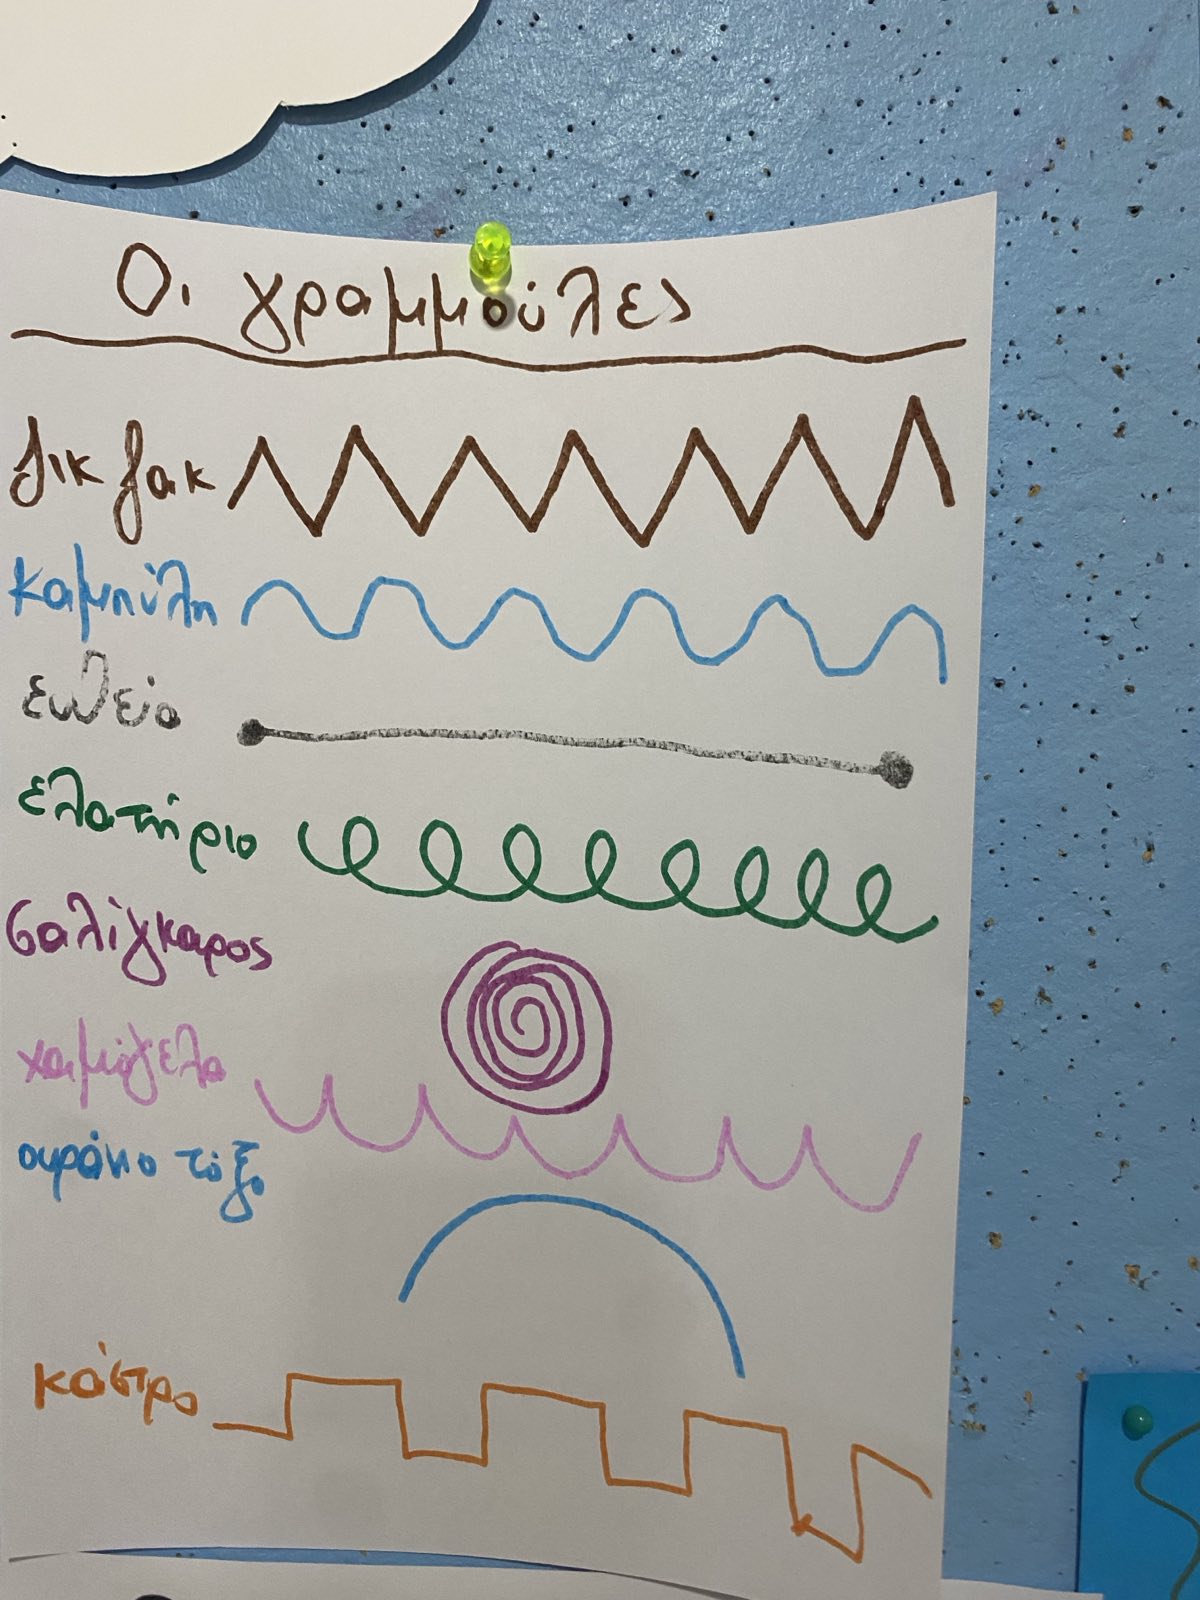 Οι γραμμούλες
ζικ ζακ
καμπύλη
ευθεία
ελατήριο
σαλίγκαρος
χαμόγελα
ουράνιο τόξο
κάστρο